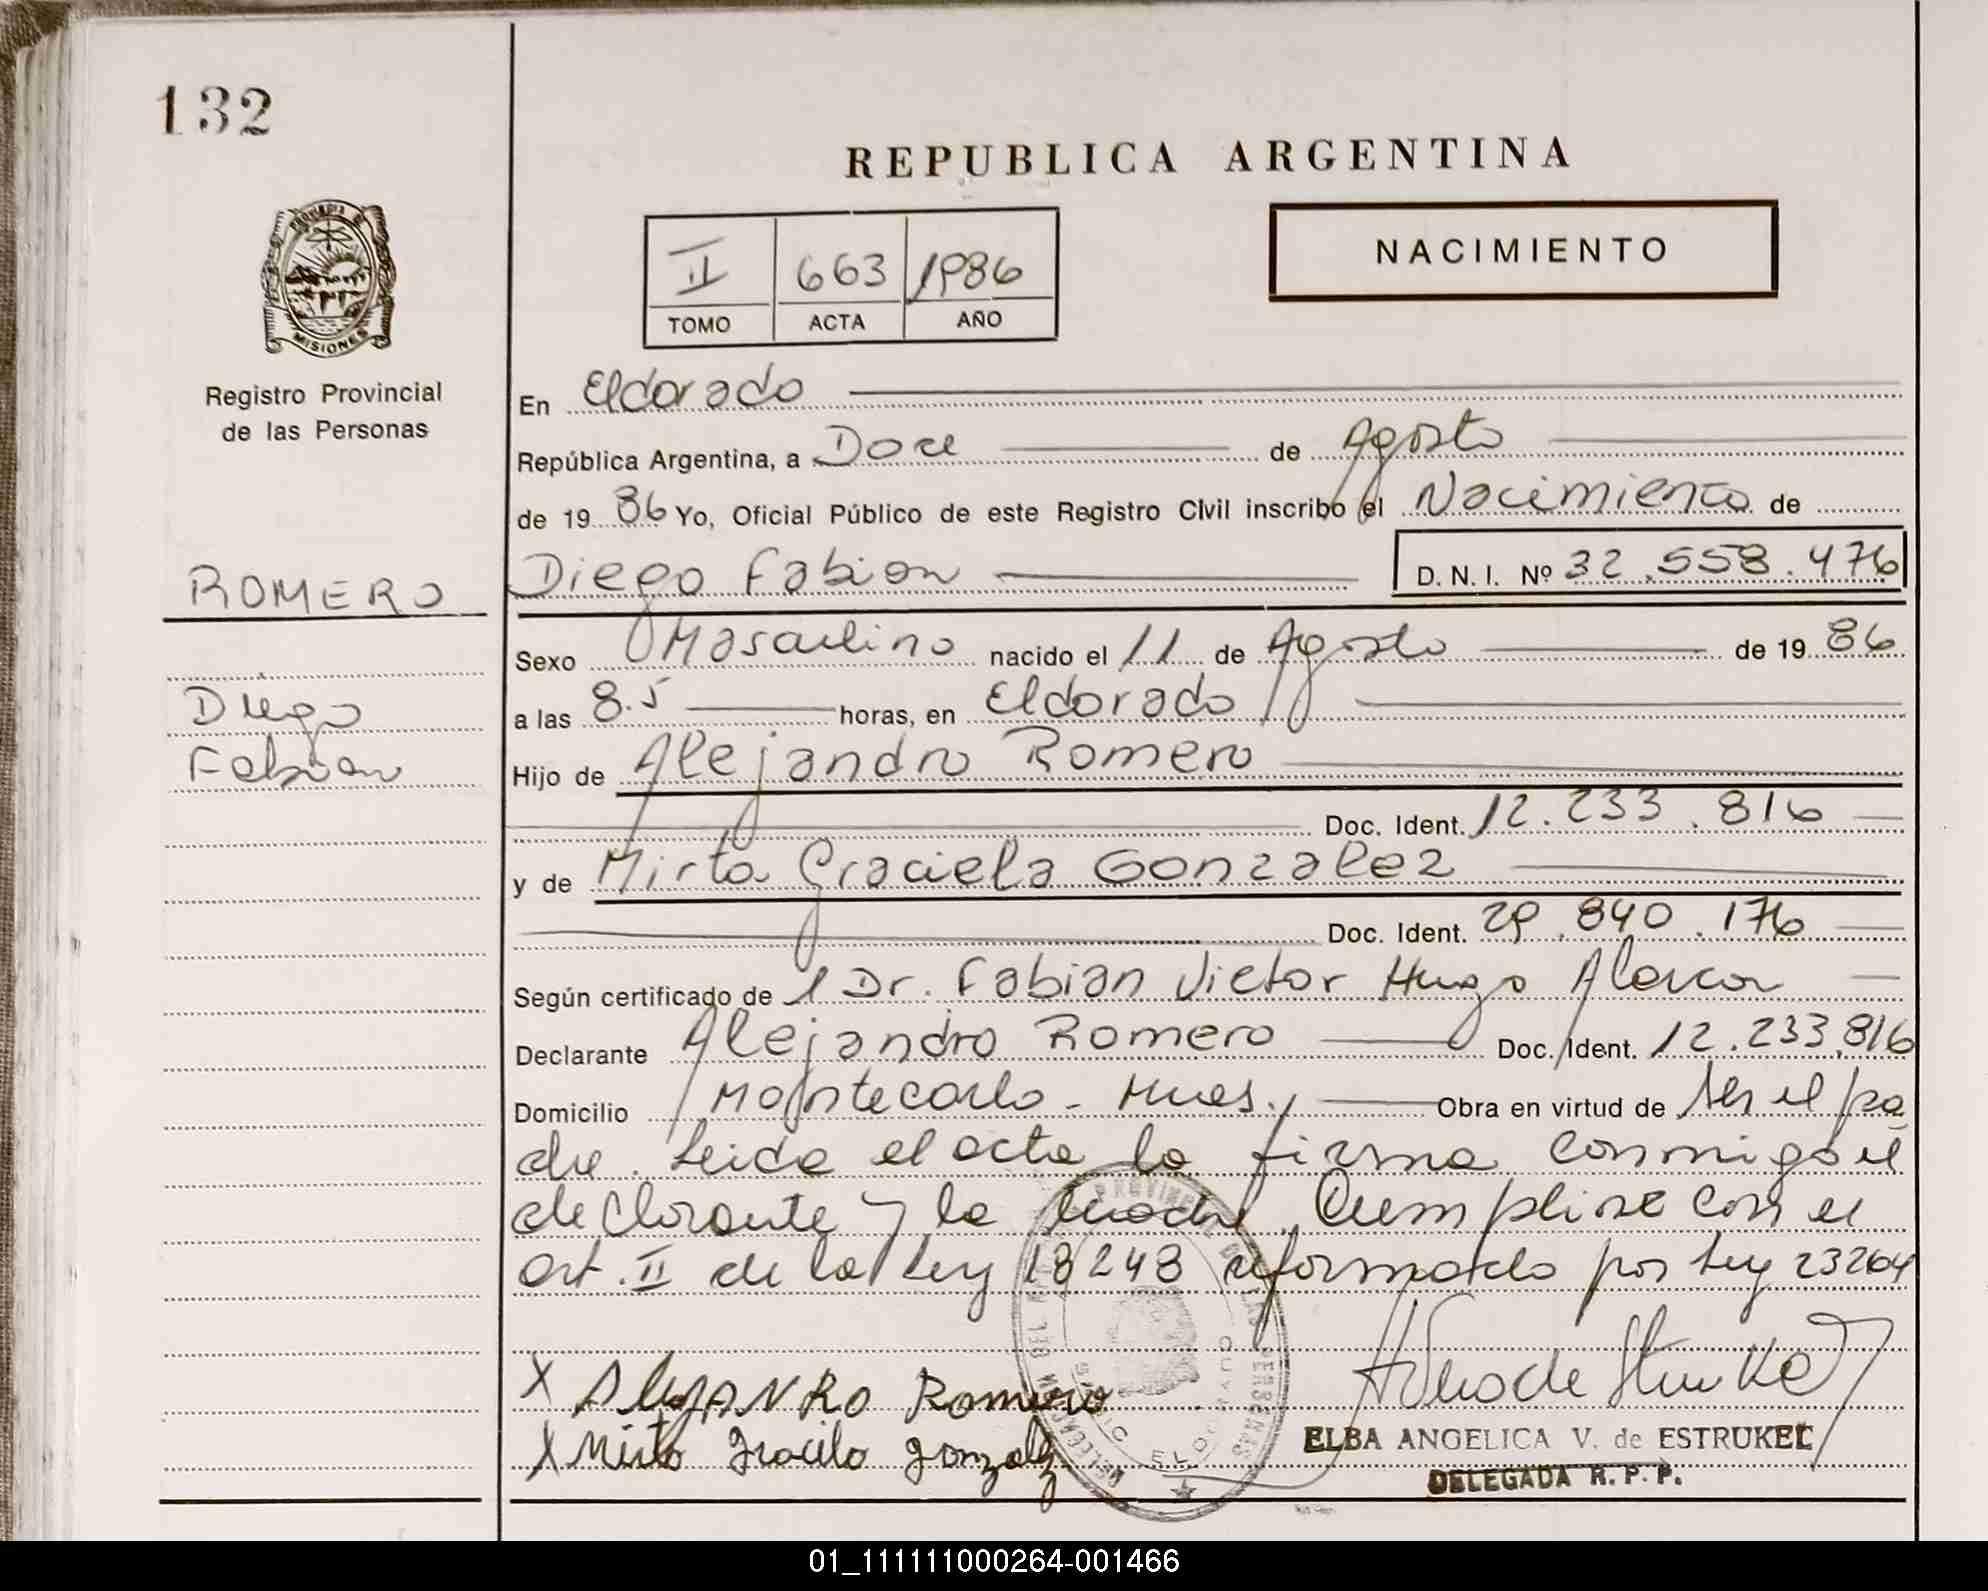 132
REPUBLICA ARGENTINA
NACIMIENTO
II 663 1986
TOMO ACTA AÑO
MISIONES
Registro Provincial
de las Personas
En Eldorado
República Argentina, a Doce de Agosto
de 1986 Yo, Oficial Público de este Registro Civil inscribo el Nacimiento de
ROMERO
Diego Fabian D. N. I. Nº 32.558.476
Sexo Masculino nacido el 11 de Agosto de 1986
Diego
a las 8.5 horas, en Eldorado
Fabian
Hijo de Alejandro Romero
Doc. Ident. 12.233.816
y de Mirta Graciela Gonzalez
Doc. Ident. 29.840.176
Según certificado de l Dr. Fabian Victor Hugo Alarcon
Declarante Alejandro Romero Doc. Ident. 12.233.816
Domicilio Montecarlo - Mnes. Obra en virtud de ser el pa
dre. Leida el acta la firma conmigo el
declarante y la madre. Cumplise con el
art. II de la ley 18248 reformado por ley 23264
X Alejanro Romero
X Mirta Graciela Gonzalez
ELBA ANGELICA V. de ESTRUKEL
DELEGADA R. P. P.
01_111111000264-001466